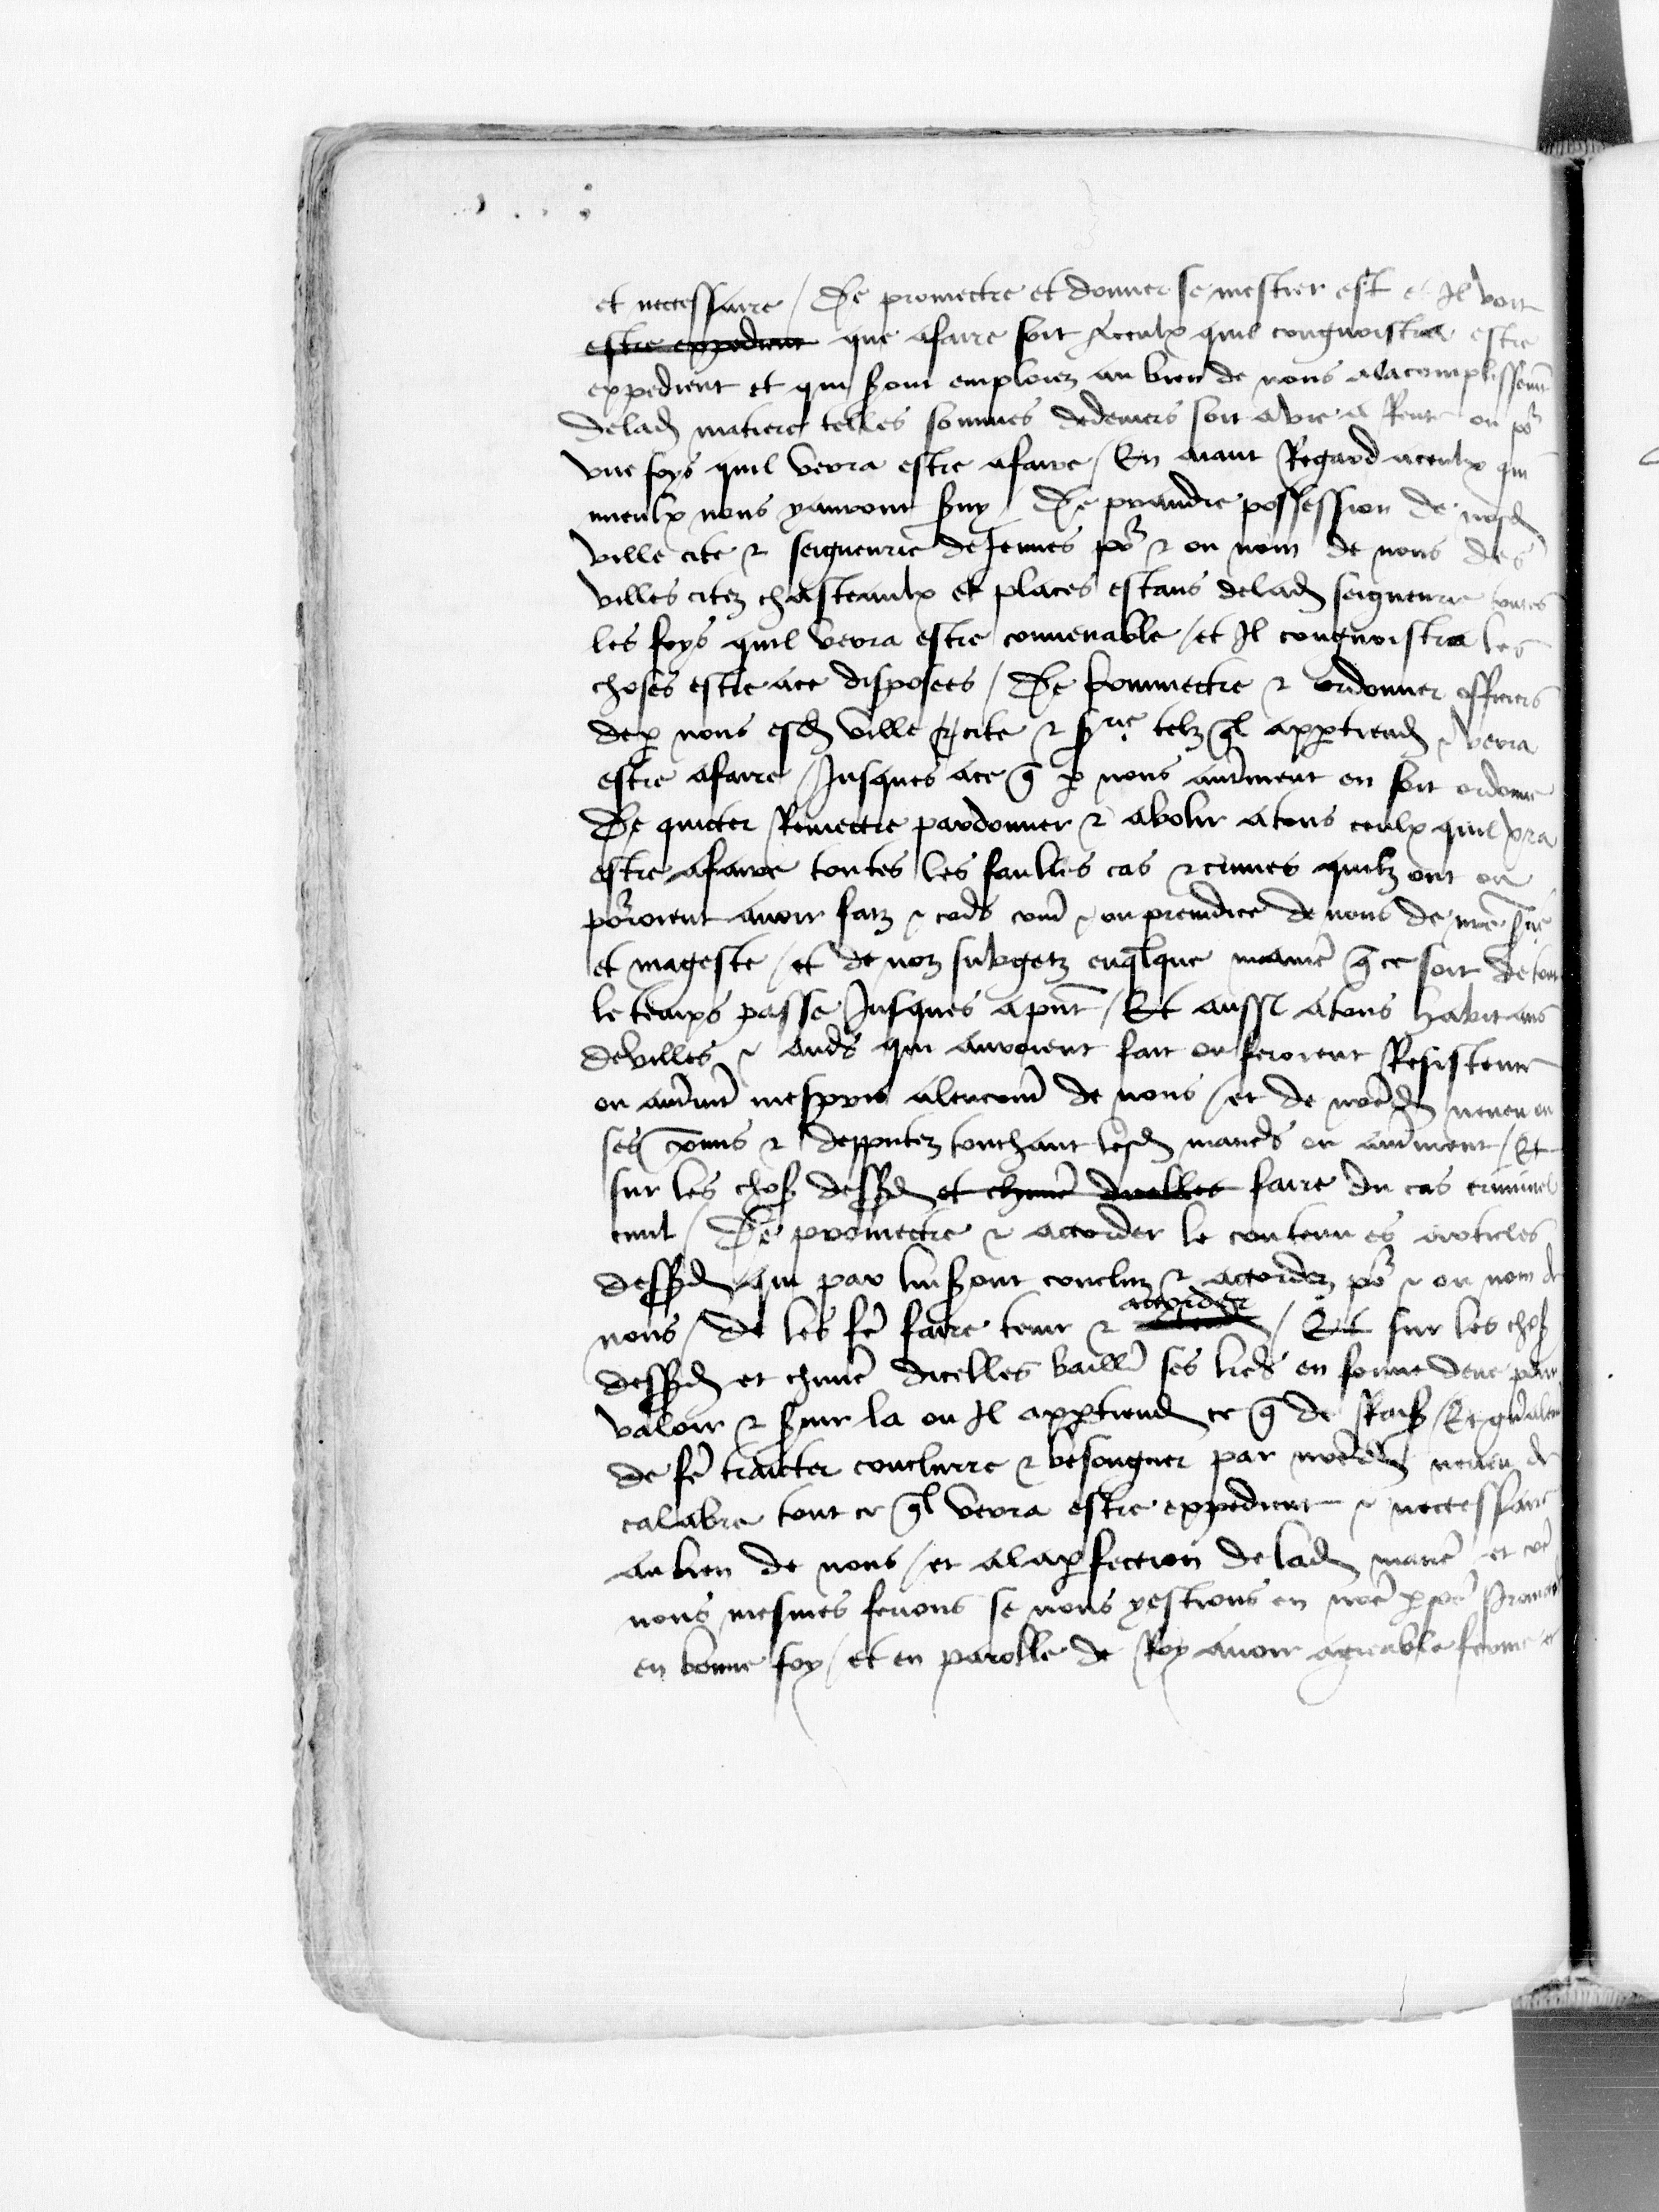 et necessaire / De promectre et donner se mestier est et Il voit
estre expedient que afaire soit Aceulx quil congnoistra estre
expedient et qui sont emploiez au bien de nous alacomplissemt
delad matiere telles sommes dedeniers soit avie a Rente ou po
vne foys quil verra estre afaire / En aiant Regard aceulx qui
mieulx nous yauront suy De prandre possession de nosd
ville cite & seigneurie deJennes po & ou nom de nous des
villes citez chasteaulx et places estans delad seigneurie toutes
les foys quil verra estre conuenable / et Il congnoistra les
choses estre ace disposees / De commectre & ordonner officiers
dep nous esd ville & cite & srie telz ql appartiend & verra
estre afaire / Jusques ace q p nous autrment en soit ordonne
De quicter Remectre pardonner & abolir atous ceulx quil vra
estre afaire toutes les faultes cas & crimes quilz ont ou
poroient auoir faiz & cods cont & ou preiudice de nous de nre srie
et mageste / et de noz subgetz enqlque manie q ce soit de tout
le temps passe Jusques apnt / Et aussi atous habitans
devilles & auds qui auroient fait ou feroient Resistence
ou autmt mespris alencont de nous / et de nred neueu ou
ses comis & depputez touchant lesd maneds ou autment / Et
sur les chos dessusd et chune dicelles faire du cas criminel
ciuil / De promectre & accorder le contenu es articles
dessusd qui par luy sont concluz & accordez po & ou nom de
nous / de les fe faire tenir & accorder / Et sur les chos
dessusd et chune dicelles baillr ses lres en forme deue pour
valoir & seruir la ou Il appartiend ce q de Rais / Et gnalemt
de fe traicter conclurre & besongner par nred neueu de
calabre tout ce ql verra estre expedient & neccessaire
au bien de nous / et alaperfection delad matie et coe
nous mesmes ferions se nous yestions en nre ppe Promect
en bonne foy / et en parolle de Roy auoir agreable ferme et